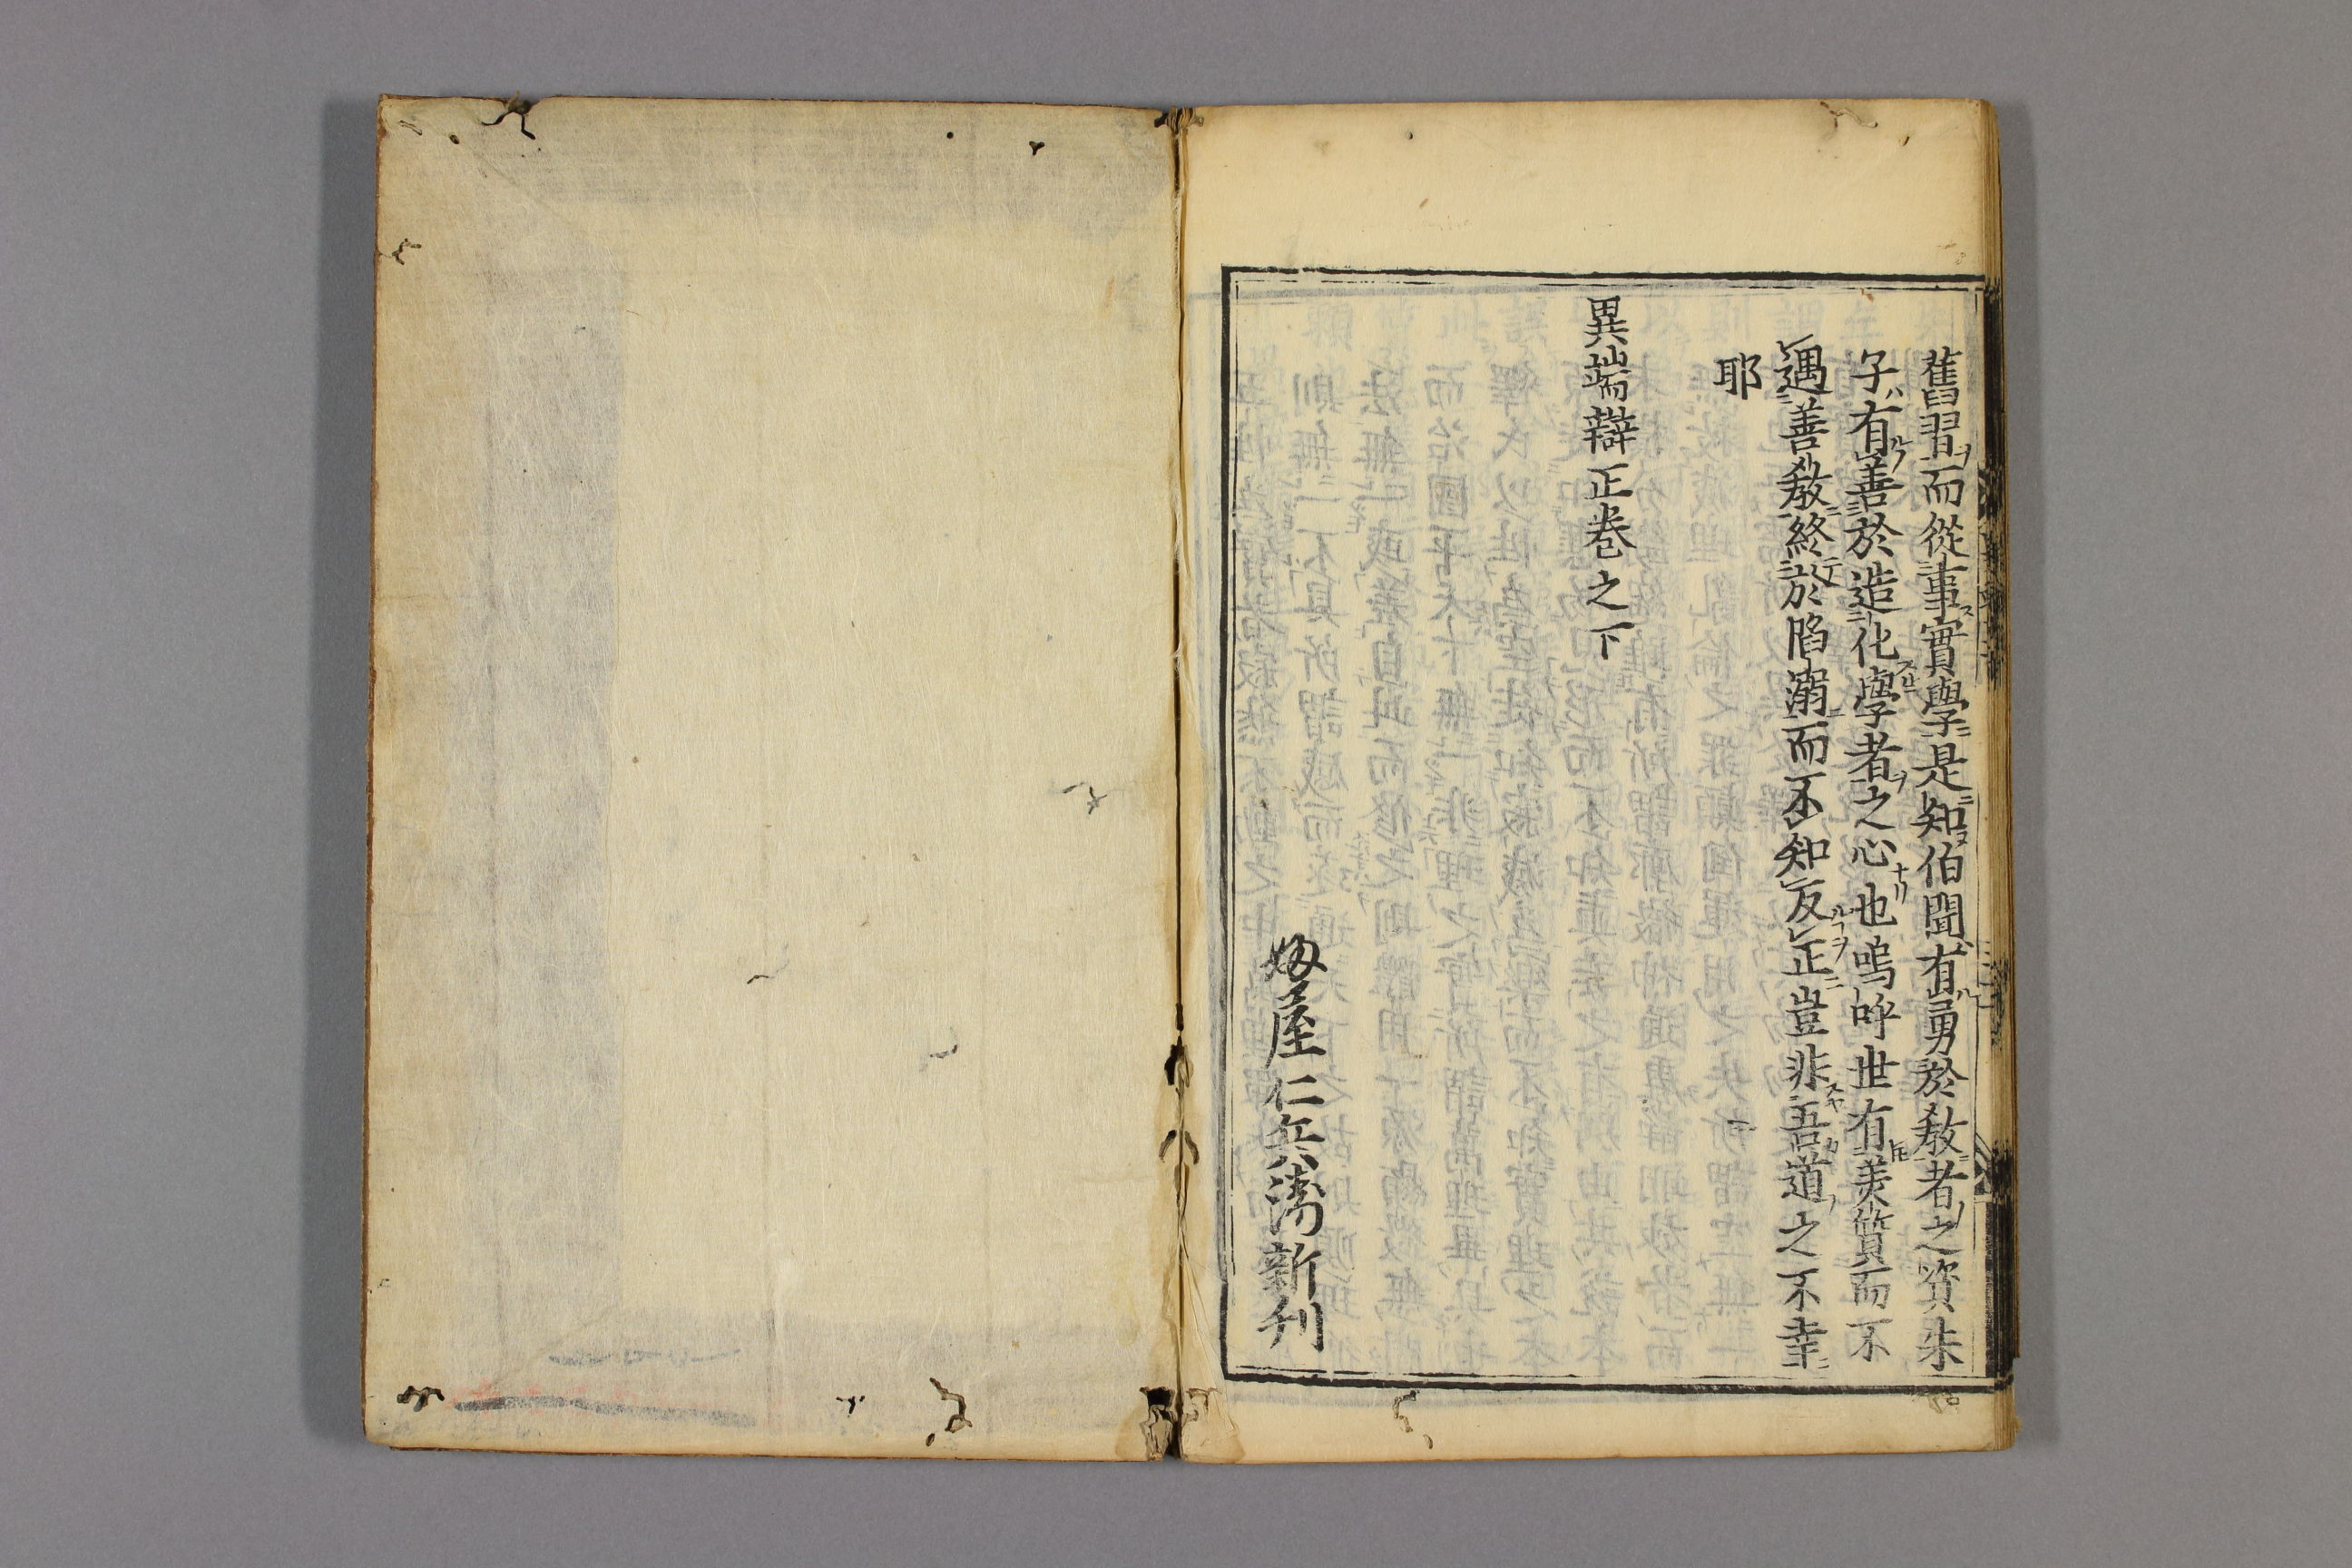 舊習而從事實學是知伯聞有勇於敎者之資朱
子有善於造化學者之心也嗚呼世有美質而不
遇善敎終於陷溺而不知反正豈非吾道之不幸
耶
異端辯正卷之下
屋仁兵衛新刊